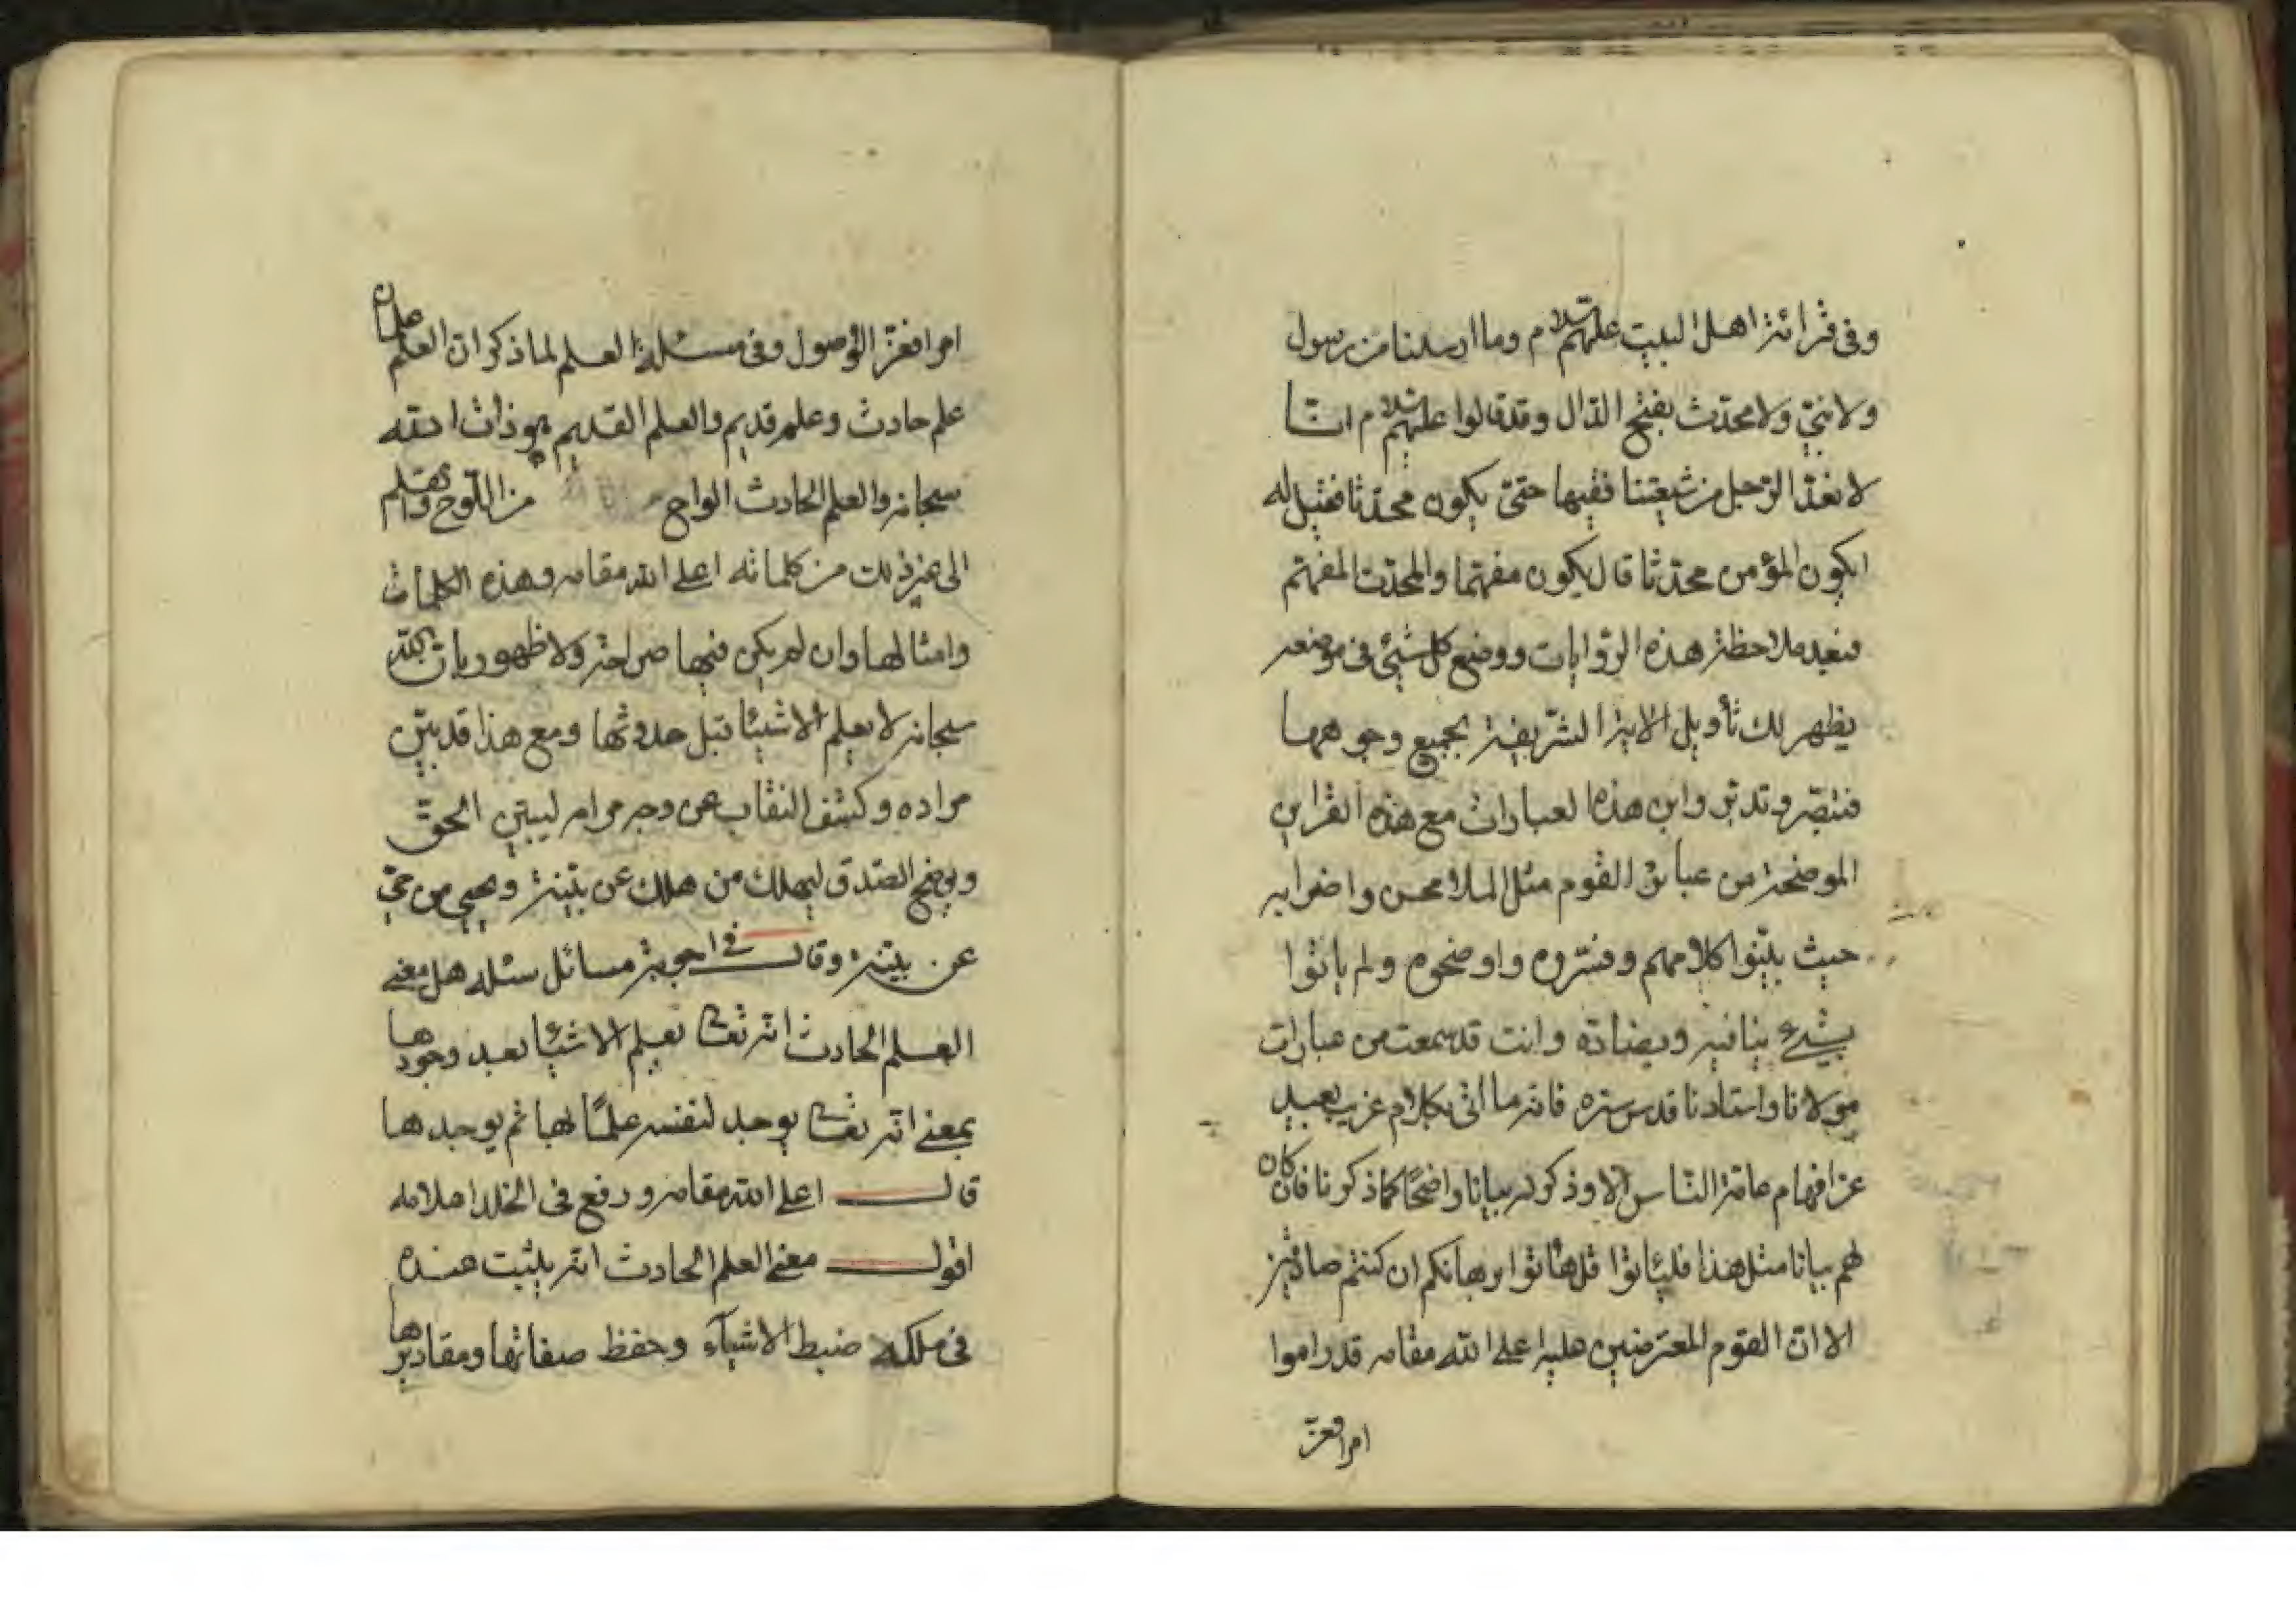 وفى قرائة اهل البيت عليهم السلام وما ارسلنا من رسول
ولا نبىّ ولا محدّث بفتح الدّال وقد قالوا عليهم السلام انّا
لا نعدّ الرّجل من شيعتنا فقيها حتىّ يكون محدّثا فقيل له
ايكون المؤمن محدّثا قال يكون مفهّما والمحدّث المفهّم
فبعد ملاحظة هذه الرّوايات ووضع كل شيئ فى موضعه
يظهر لك تأويل الاية الشّريفة بجميع وجوهها
فتبصّر وتدبّر واين هذه العبارات مع هذه القراين
الموضحة من عبائر القوم مثل الملا محسن واضرابه
حيث بيّنوا كلامهم وفسّروه واوضحوه ولم ياتوا
بشيئ ينافيه ويضادّه وانت قد سمعت من عبارات
مولانا واستادنا قدس سرّه فانّه ما اتى بكلام غريب بعيد
عن افهام عامّة النّاس الا وذكر له بيانا واضحًا كما ذكرنا فان كان
لهم بيانا مثل هذا فليئاتوا قل هاتوا برهانكم ان كنتم صادقين
الا انّ القوم المعترضين عليه اعلى الله مقامه قد راموا
امرا فعزّ
امرا فعزّ الوصول وفى مسئلة العلم لما ذكر انّ العلم علمان
علم حادث وعلم قديم والعلم القديم هو ذات الله
سبحانه والعلم الحادث الواح من اللّوح والقلم
الى غير ذلك من كلماته اعلى الله مقامه وهذه الكلمات
وامثالها وان لم يكن فيها صراحة ولا ظهور بانّ الله
سبحانه لا يعلم الاشيئا قبل حدوثها ومع هذا قد بيّن
مراده وكشف النقاب عن وجه مرامه ليبيّن الحقّ
ويوضح الصّدق ليهلك من هلك عن بيّنة ويحيى من حىّ
عن بيّنة وقال فى اجوبة مسائل سئله هل معنى
العلم الحادث انّه تعالى يعلم الاشيئا بعد وجودها
بمعنى انّه تعالى يوجد لنفسه علمًا بها ثم يوجدها
قال اعلى الله مقامه ورفع فى الخلد اعلامه
اقول معنى العلم الحادث انّه يثبت عنده
فى ملكه ضبط الاشيآء وحفظ صفاتها ومقاديرها